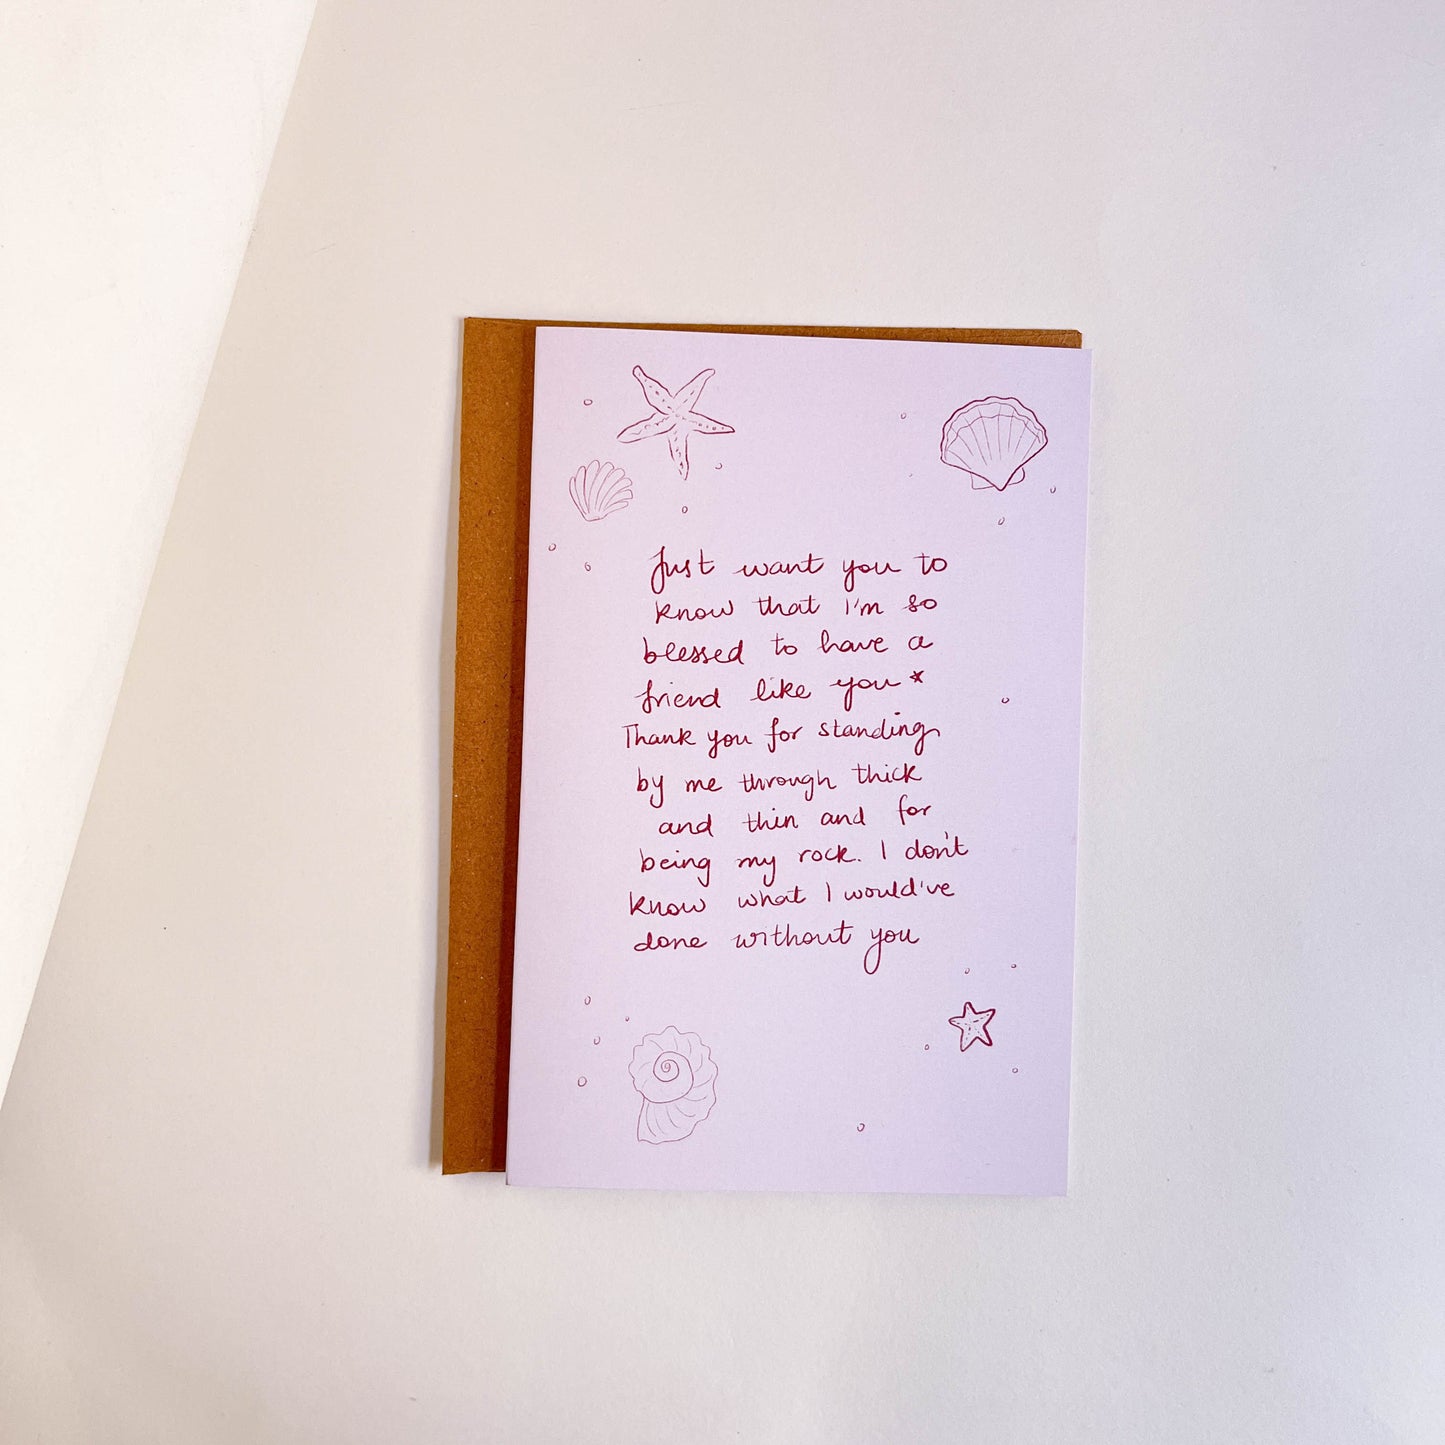 Just want you to
know that I'm so
blessed to have a
friend like you*
Thank you for standing
by me through thick
and thin and for
being my rock. I don't
know what I would've
done without you